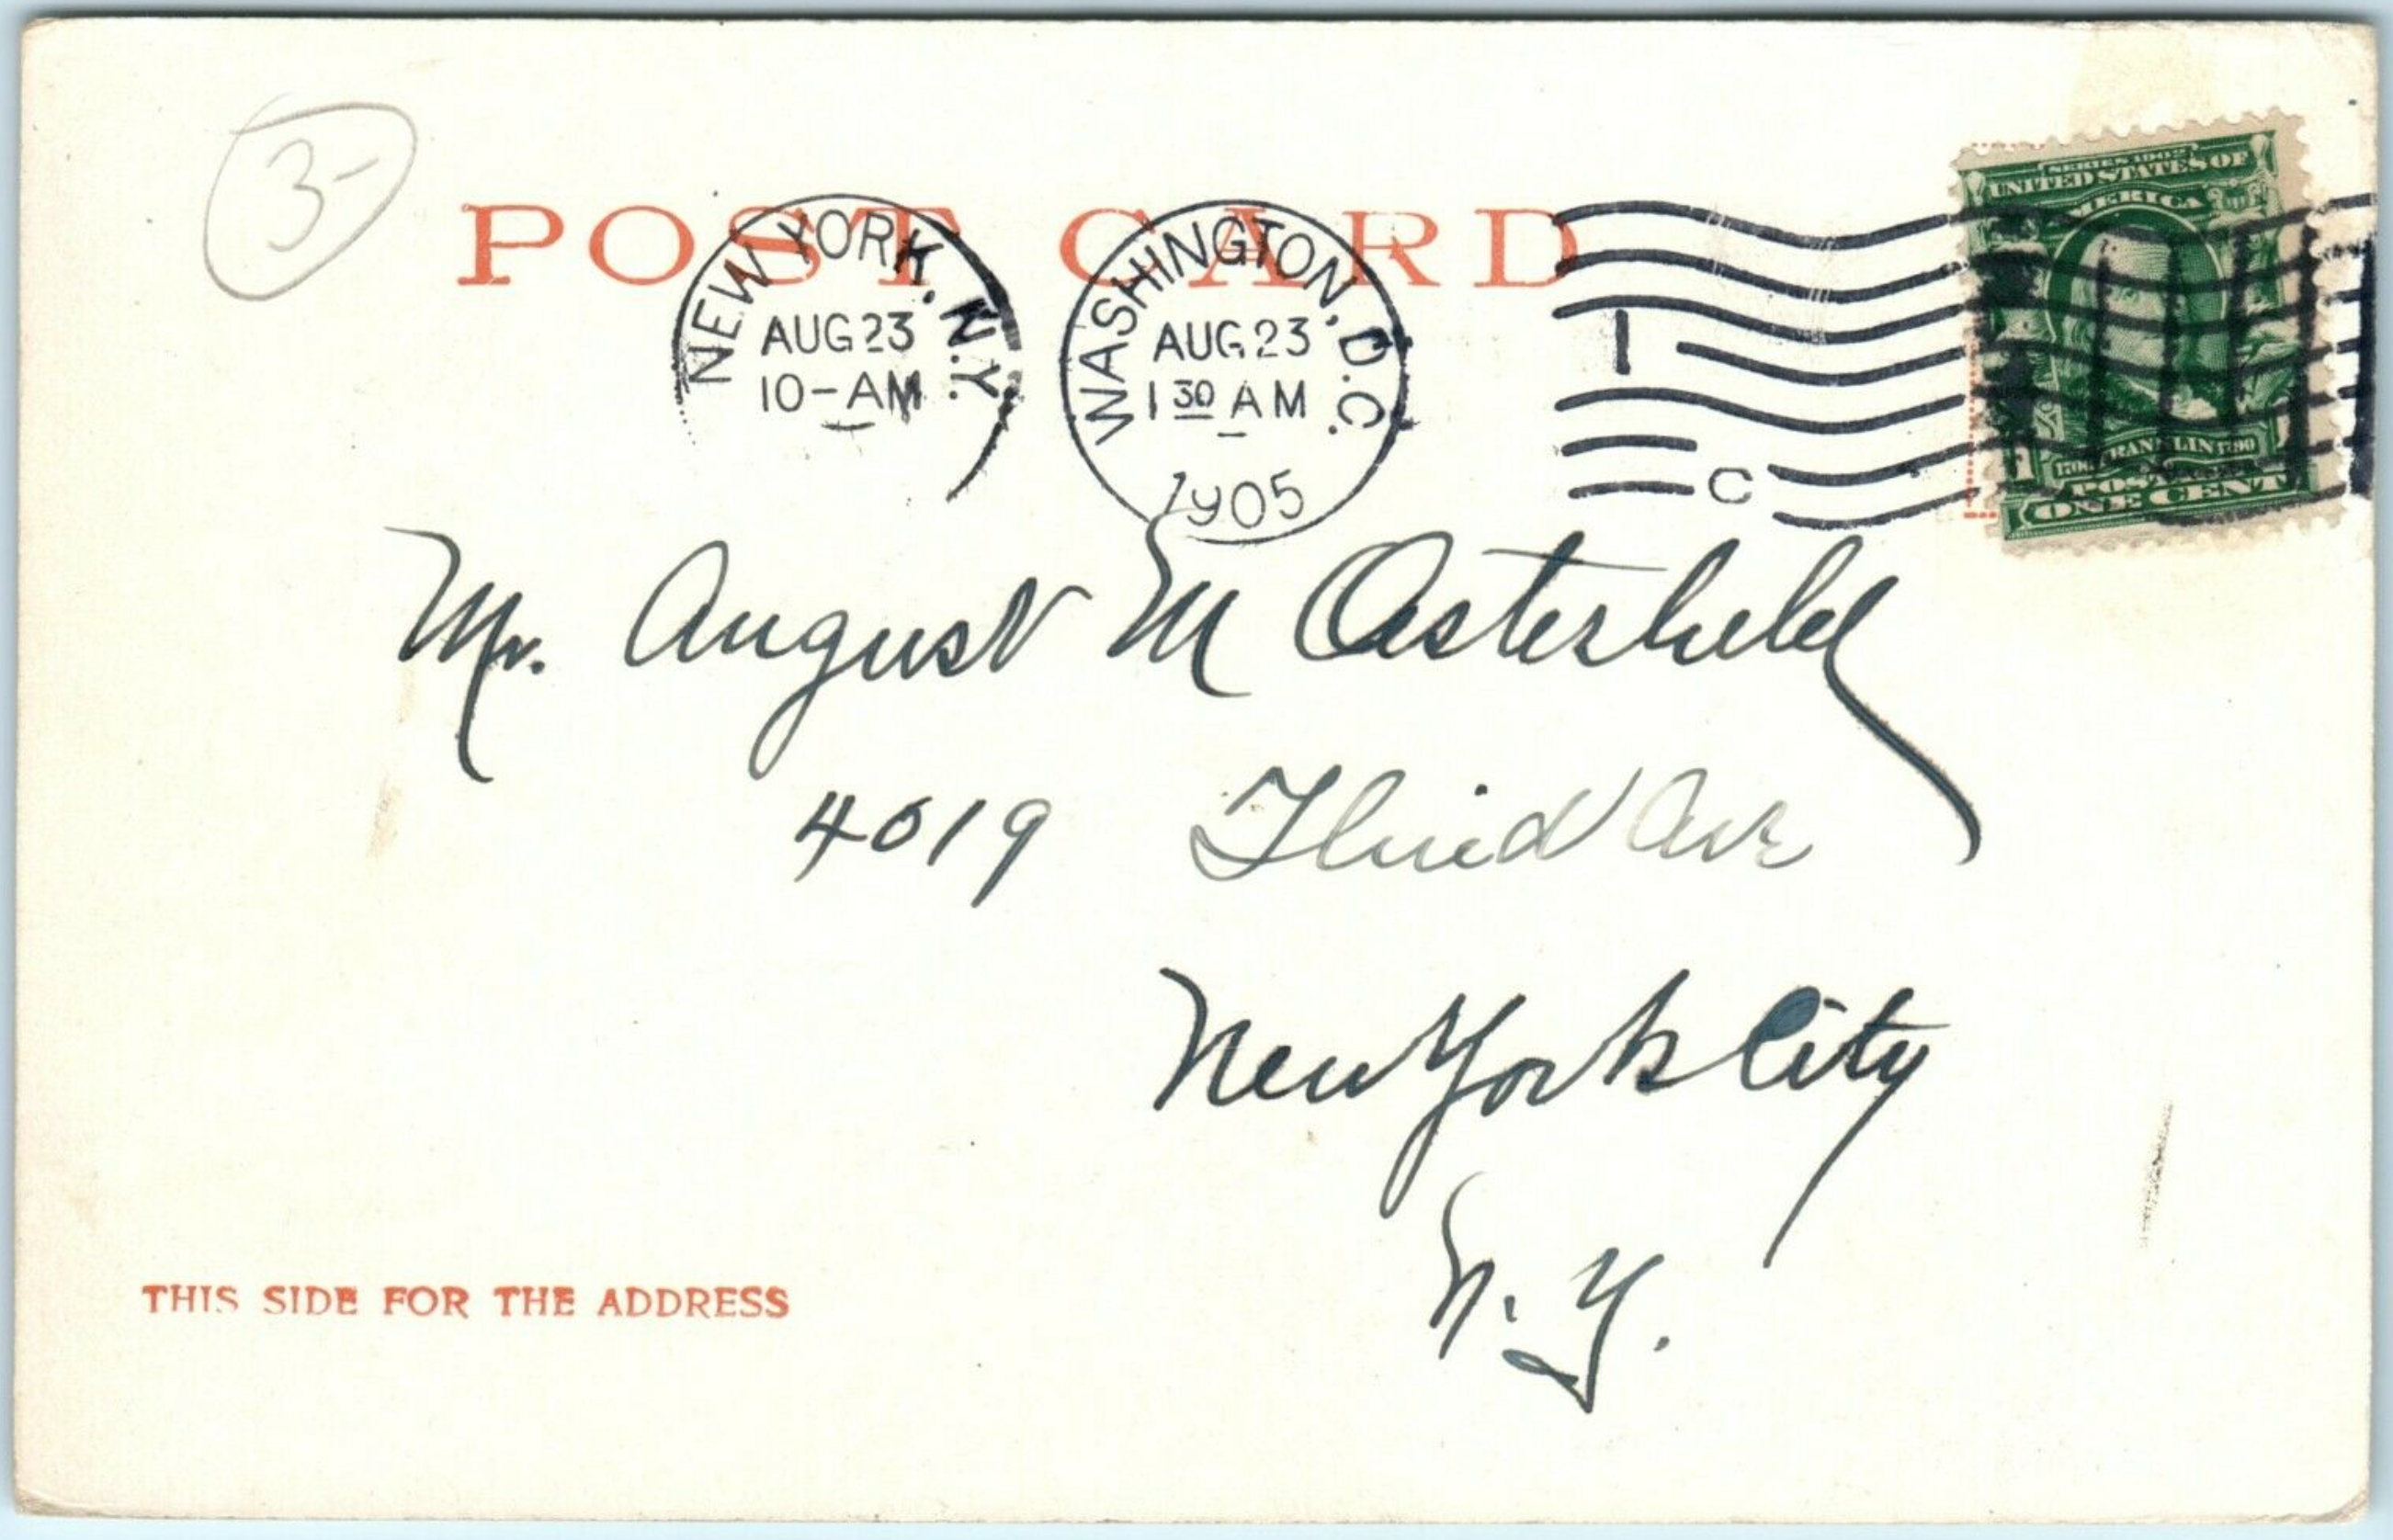 3-
POST CARD
NEW YORK, N.Y.
AUG 23
10-AM
WASHINGTON, D.C.
AUG 23
1 30 AM
1905
1
C
SERIES 1902
UNITED STATES OF
AMERICA
FRANKLIN 1790
1
POSTAGE
ONE CENT
Mr. August M
4019 Third Ave
New York City
N. Y.
THIS SIDE FOR THE ADDRESS